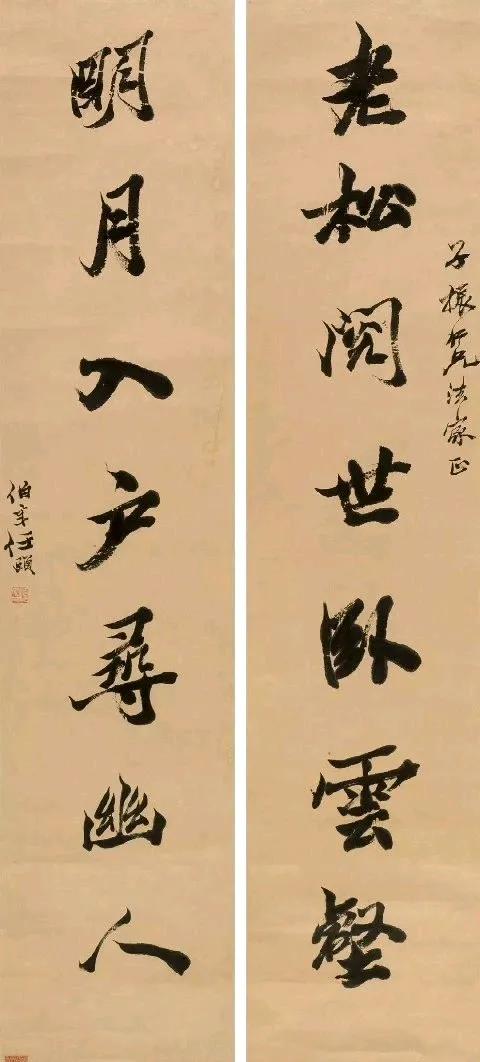 老松阅世卧雲壑
子振仁兄法家正
明月入户尋幽人
伯年任頤